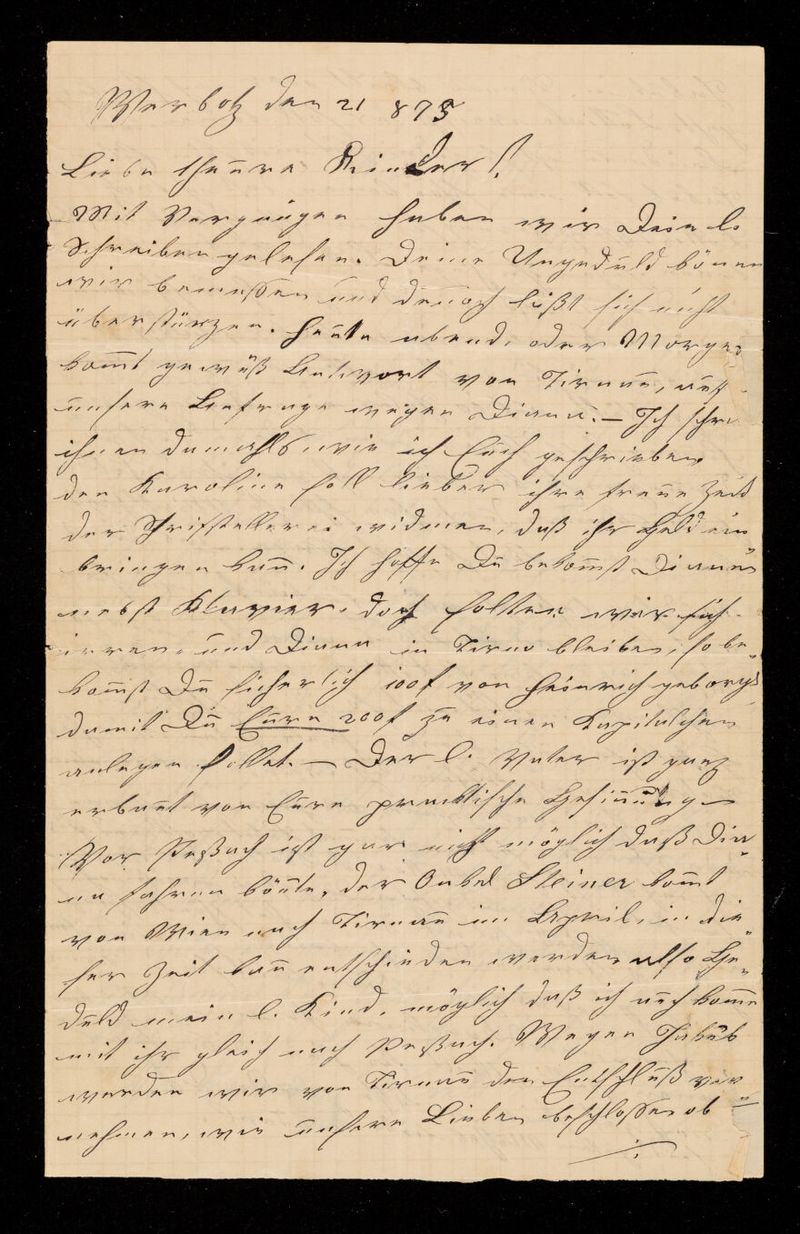 Werbotz den 21 875
Liebe theure Kinder!
Mit Vergnügen haben wir Dein l.
Schreiben gelesen. Deine Ungeduld könen
wir bemessen und denoch läßt sich nicht
überstürzen. Heute abend, oder Morgen
komt gewiß Antwort von Tirnau, auf
unsere Anfrage wegen Diana. — Ich schri
ihnen damahls, wie ich Euch geschrieben
den Karoline soll lieber ihre freue Zeit
der Schrifstellerei widmen, daß ihr Geld ein
bringen kan. Ich hoffe Du bekomst Diana
nebst Klavier. doch solten wir sich
irren, und Diana in Tirno bleiben, so be-
komst Du sicherlich 100f von Heinrich geborgt
damit Du Eure 200f zu einen Kapitalchen
anlegen sollet. — Der l. Vater ist ganz
erbaut von Eure practische Gesinnung —
Vor Peßach ist gar nicht möglich daß Dia-
na fahren könte, der Onkel Steiner komt
von Wien nach Tirnau im April, in die-
ser Zeit kan entschieden werden also Ge-
duld mein l. Kind, möglich daß ich auch komme
mit ihr gleich nach Peßach. Wegen Jakob
werden wir von Tirnau den Entschluß ver-
nehmen, wie unsere Lieben beschloßen ob
./.